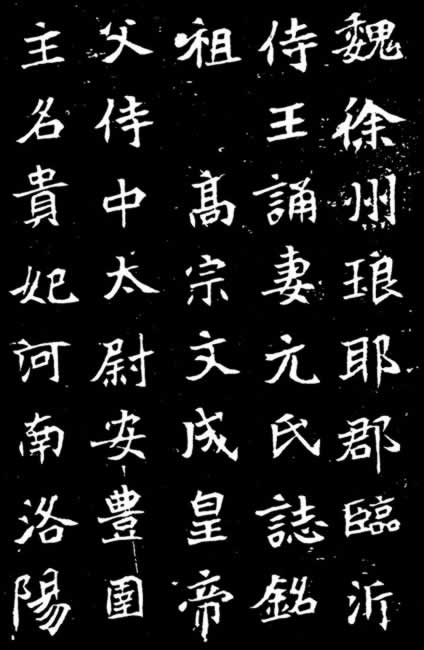 魏徐州琅耶郡臨沂
侍王誦妻元氏誌銘
祖 髙宗文成皇帝
父侍中太尉安豐圉
主名貴妃河南洛陽